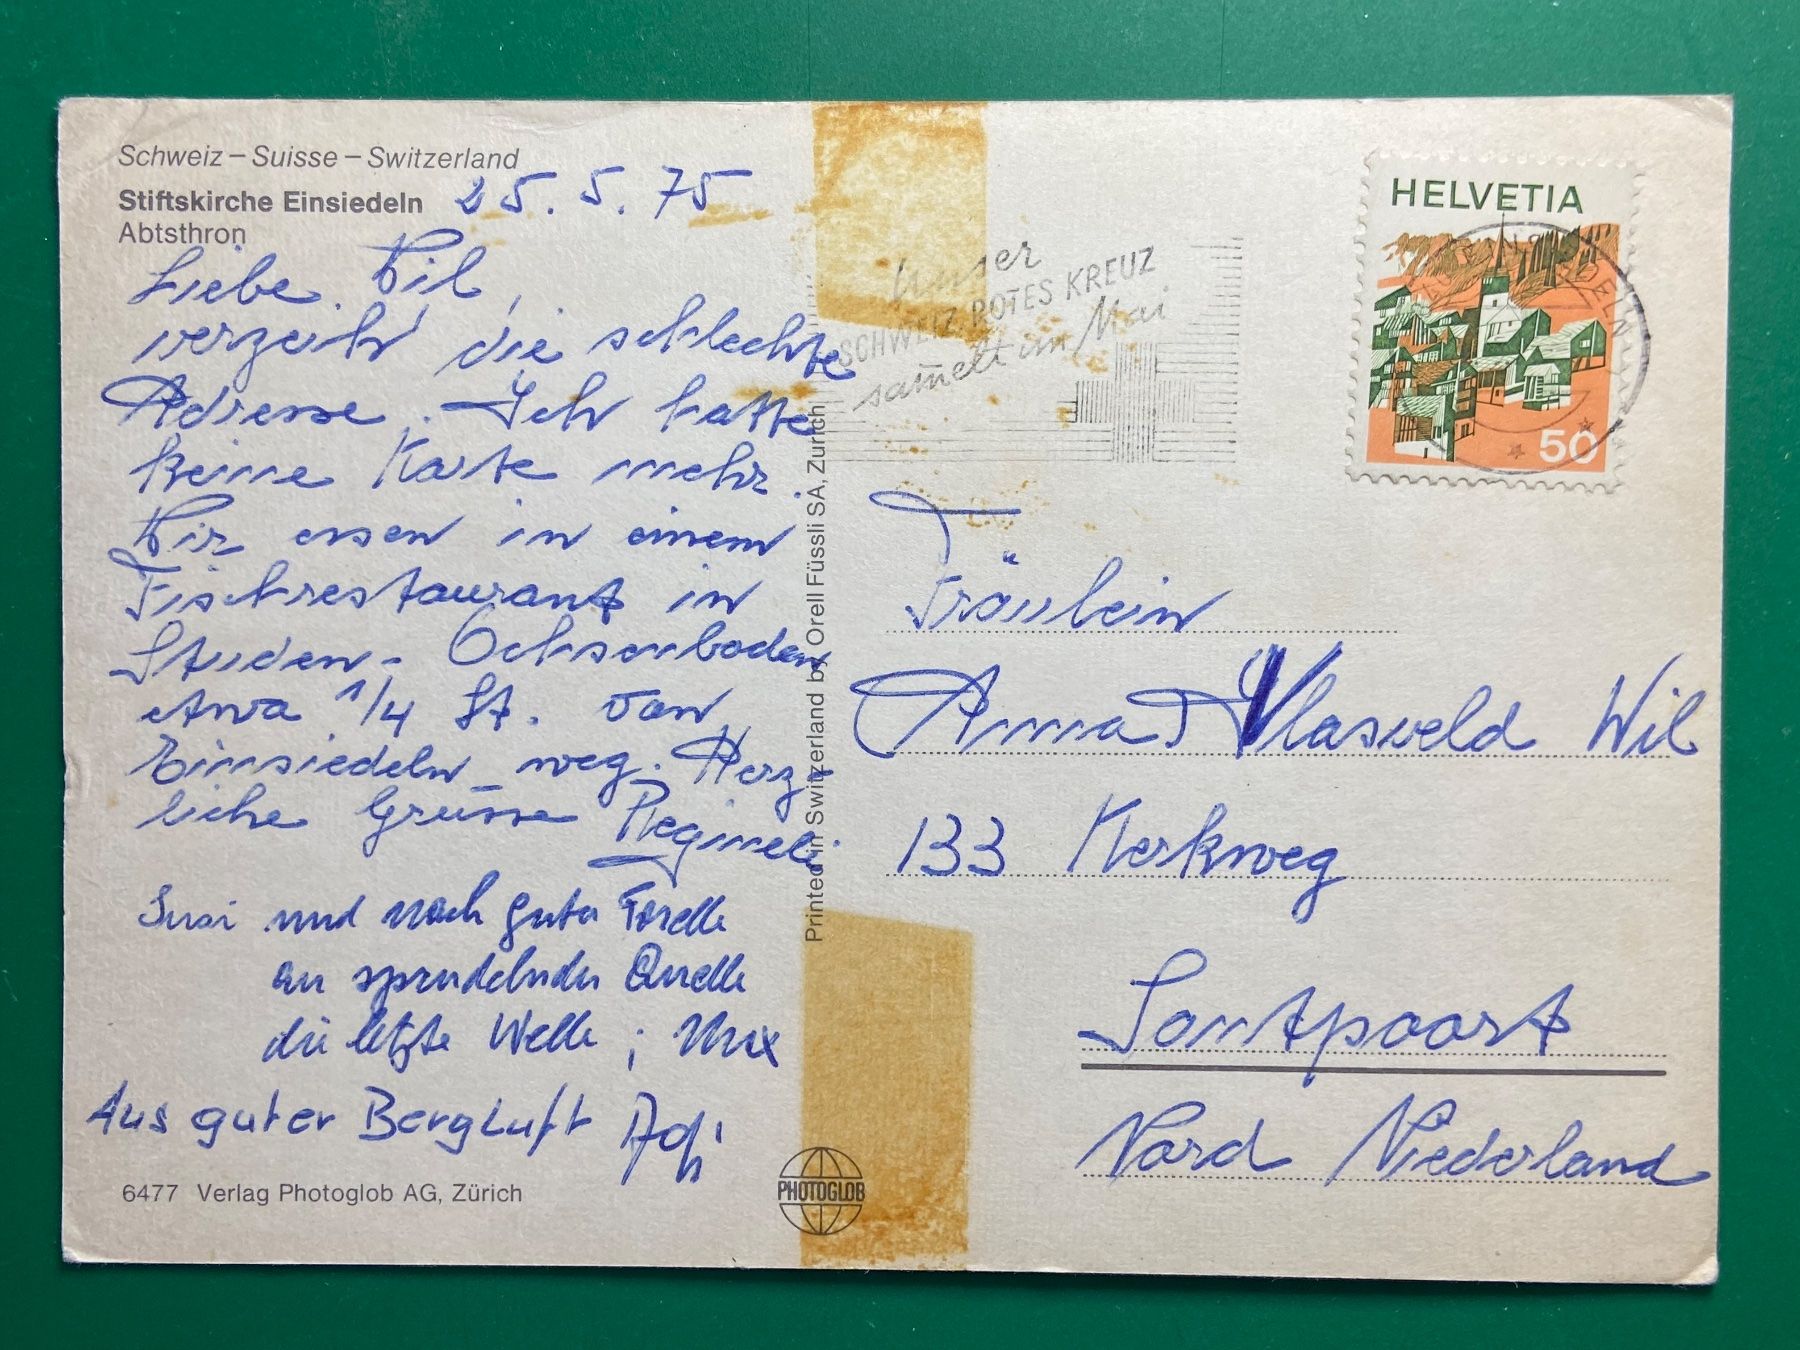 Schweiz – Suisse – Switzerland
Stiftskirche Einsiedeln
Abtsthron
25. 5. 75
Liebe Wil,
verzeih' die schlechte
Adresse. Ich hatte
keine Karte mehr.
Wir essen in einem
Fischrestaurant in
Studen-Ochsenboden
etwa 1/4 St. von
Einsiedeln weg. Herz-
liche Grüsse Regineli
Susi und nach guter Forelle
an sprudelnder Quelle
die letzte Welle; Max
Aus guter Bergluft
6477 Verlag Photoglob AG, Zürich
Printed in Switzerland by Orell Füssli SA, Zürich
PHOTOGLOB
Unser
SCHWEIZ. ROTES KREUZ
sam̄elt im Mai
HELVETIA
50
EINSIEDELN
Fräulein
Anna Vlasveld Wil
133 Kerkweg
Santpoort
Nord Niederland